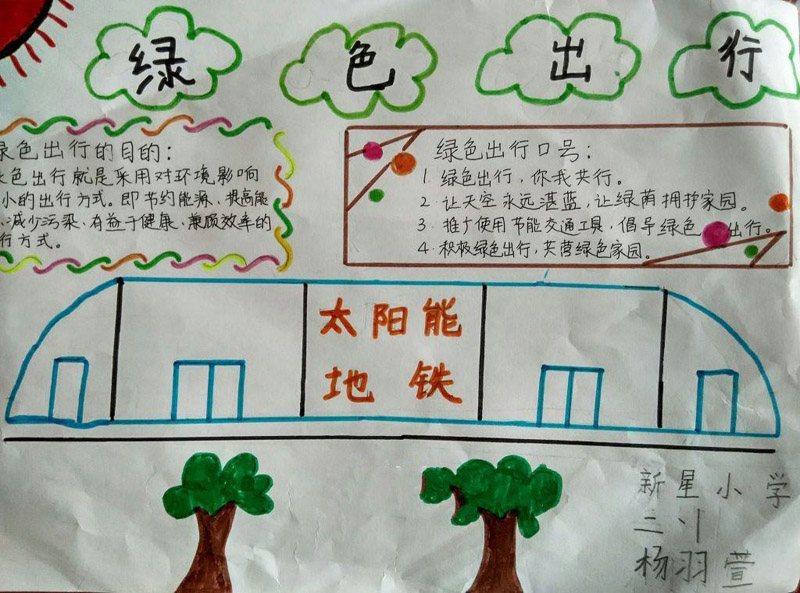 绿色出行
绿色出行的目的：
色出行就是采用对环境影响
小的出行方式。即节约能源、提高能
、减少污染、有益于健康、兼顾效率的
行方式。
绿色出行口号：
1. 绿色出行，你我共行。
2. 让天空永远湛蓝，让绿荫拥护家园。
3. 推广使用节能交通工具，倡导绿色出行。
4. 积极绿色出行，共营绿色家园。
太阳能
地铁
新星小学
二、1
杨羽萱